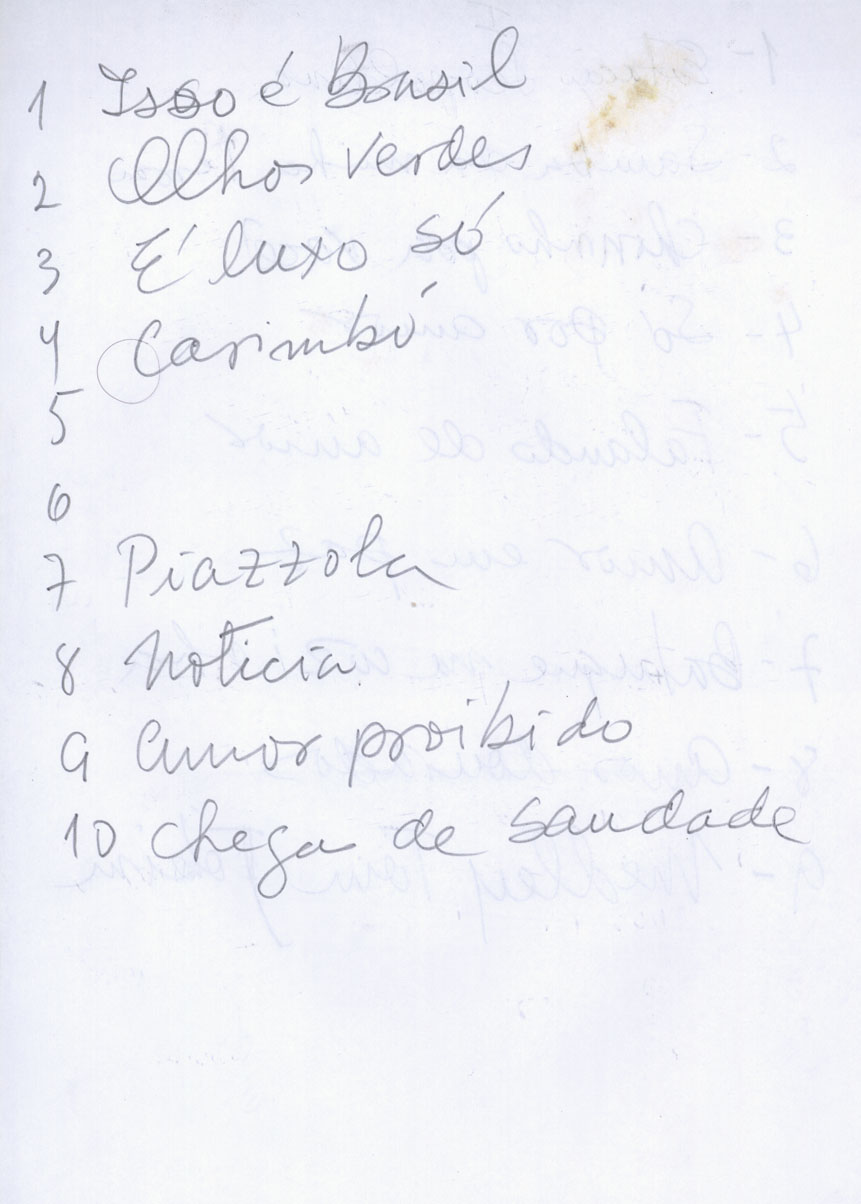 1 Isso é Brasil
2 Olhos verdes
3 É luxo só
4 Carimbó
5
6
7 Piazzola
8 Noticia
9 Amor proibido
10 Chega de saudade